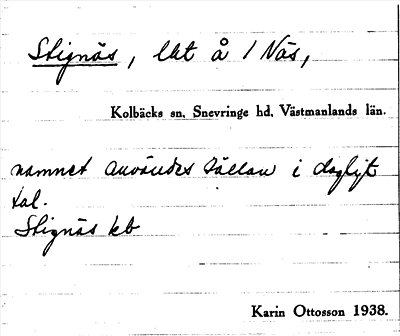 Stignäs, lht å 1 Näs,
Kolbäcks sn. Snevringe hd. Västmanlands län.
namnet användes sällan i dagligt
tal.
Stignäs kb
Karin Ottosson 1938.